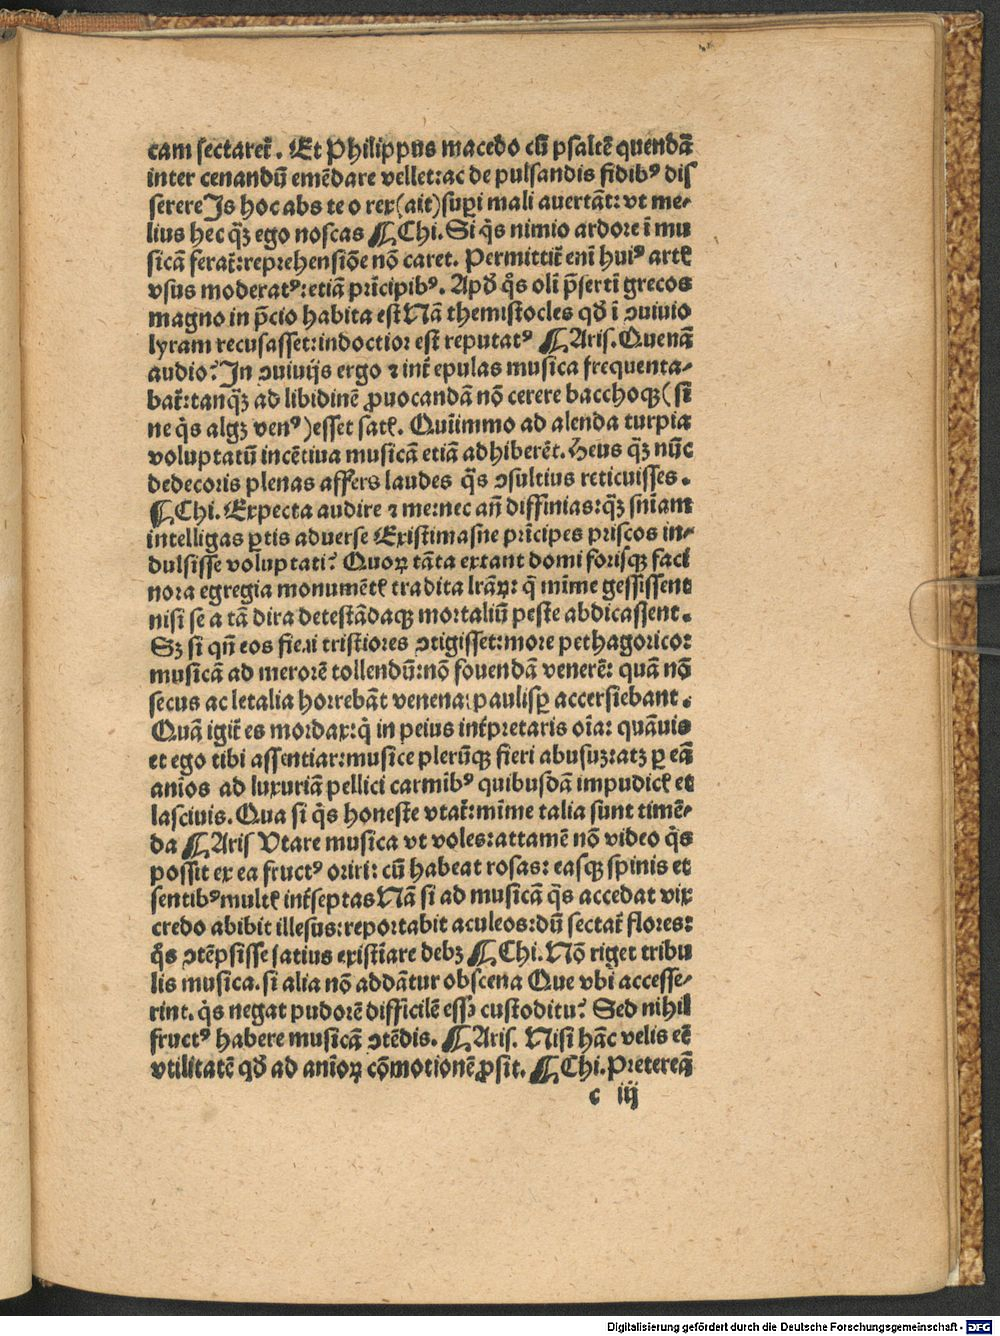 cam sectaret̃. Et Philippus macedo cũ psaltẽ quendã
inter cenandũ emẽdare vellet:ac de pulsandis fidibꝰ dis
serere Is hoc abs te o rex(ait)suꝑi mali auertãt: vt me-
lius hec qz̃ ego noscas ¶Chi. Si q̃s nimio ardore ĩ mu
sicã ferat̃:reprehensiõe nõ caret. Permittit̃ enĩ huiꝰ artꝭ
vsus moderatꝰ:etiã prĩcipibꝰ. Apð q̃s olĩ p̃serti grecos
magno in p̃cio habita est Nã themistocles qð ĩ ꝯuiuio
lyram recusasset:indoctior est reputatꝰ ¶Aris. Quenã
audio? In ꝯuiuijs ergo ⁊ int̃ epulas musica frequenta-
bat̃:tanqz̃ ad libidinẽ ꝓuocandã nõ cerere bacchoqꝫ(si
ne q̃s algꝫ venꝰ)esset satꝭ. Quĩimmo ad alenda turpia
voluptatũ incẽtiua musicã etiã adhiberẽt. Heus qz̃ nũc
dedecoris plenas affers laudes q̃s ꝯsultius reticuisses.
¶Chi. Expecta audire ⁊ me:nec añ diffinias:qz̃ sñiam
intelligas ꝑtis aduerse Existimasne prĩcipes priscos in-
dulsisse voluptati? Quoꝝ tãta extant domi forisqꝫ faci
nora egregia monumẽtꝭ tradita lr̃aꝝ: q̃ mĩme gessissent
nisi se a tã dira detestãdaqꝫ mortaliũ peste abdicassent.
Sꝫ si qñ eos fieri tristiores ꝯtigisset:more pethagoricoꝛ
musicã ad merorẽ tollendũ:nõ fouendã venerẽ: quã nõ
secus ac letalia horrebãt venena:paulisꝑ accersiebant.
Quã igit̃ es mordax:q̃ in peius int̃pretaris oĩa: quãuis
et ego tibi assentiar:musice plerũqꝫ fieri abusuꝫ:atꝫ ꝑ eã
anĩos ad luxuriã pellici carmĩbꝰ quibusdã impudicꝭ et
lasciuis. Qua si q̃s honeste vtat̃:mĩme talia sunt timẽ-
da ¶Aris Vtare musica vt voles:attamẽ nõ video q̃s
possit ex ea fructꝰ oriri: cũ habeat rosas: easqꝫ spinis et
sentibꝰ multꝭ int̃septas Nã si ad musicã q̃s accedat vix
credo abibit illesus:reportabit aculeos:dũ sectat̃ flores:
q̃s ꝯtẽpsisse satius existĩare debꝫ ¶Chi. Nõ riget tribu
lis musica. si alia nõ addãtur obscena Que vbi accesse-
rint. q̃s negat pudorẽ difficilẽ essꝫ custoditu? Sed nihil
fructꝰ habere musicã ꝯtẽdis. ¶Aris. Nisi hãc velis eẽ
vtilitatẽ qð ad anĩoꝝ cõmotionẽ ꝓsit. ¶Chi. Pretereã
c iij
Digitalisierung gefördert durch die Deutsche Forschungsgemeinschaft - DFG